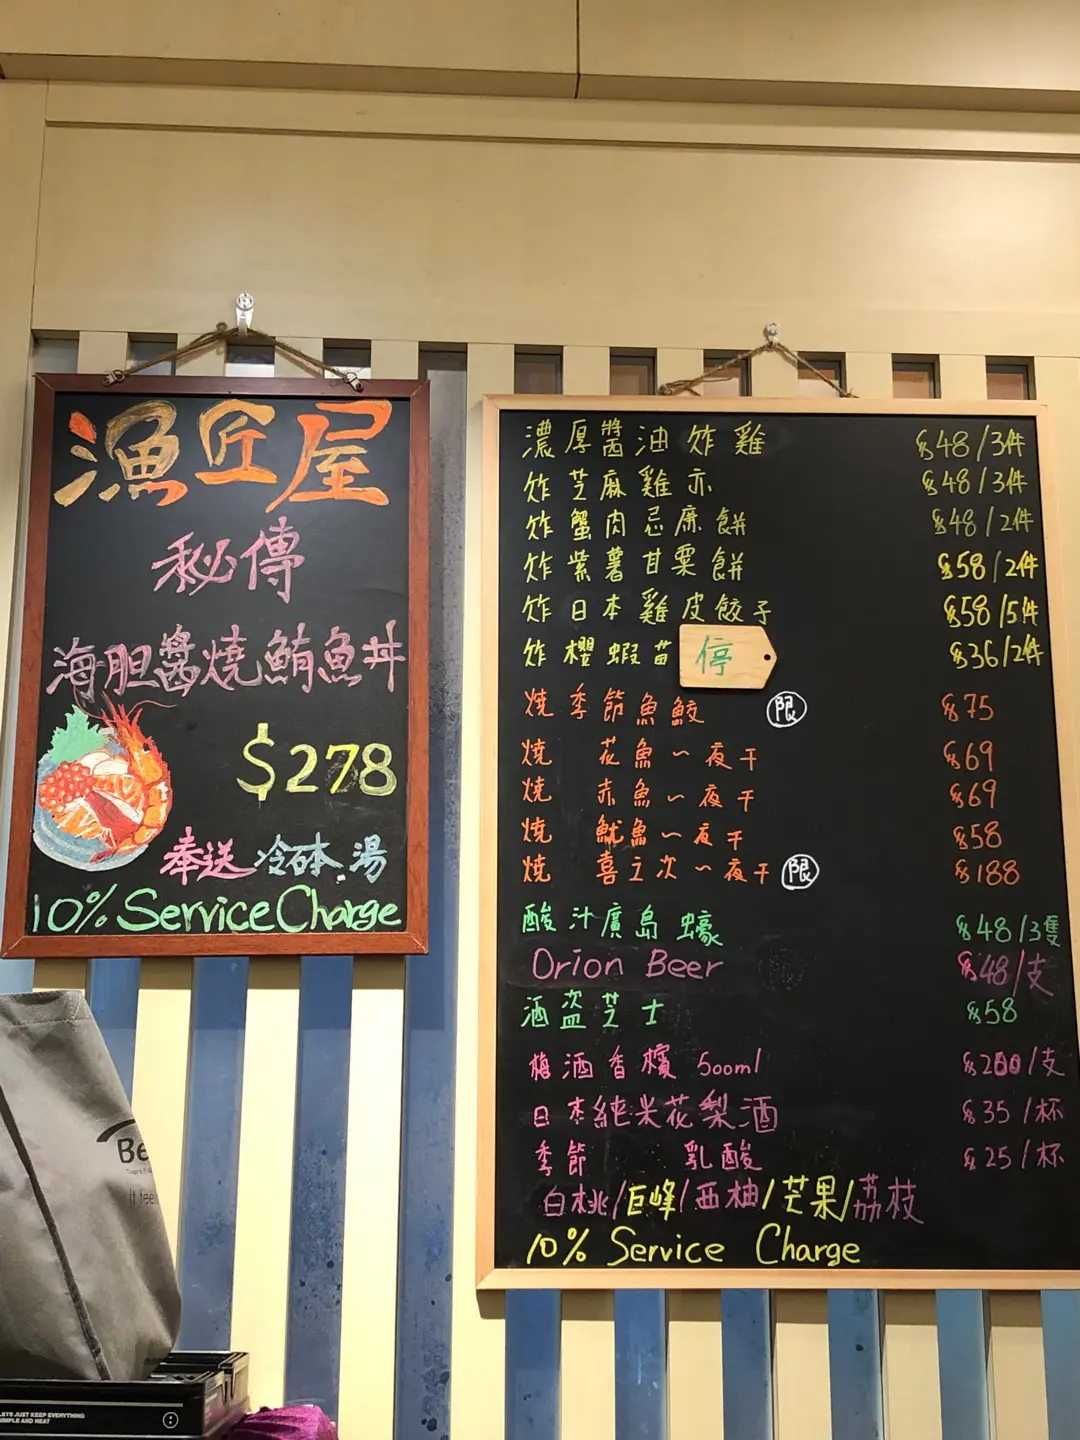 漁匠屋
秘傳
海胆醬燒鮪魚丼
$278
奉送 冷砵 湯
10% Service Charge
濃厚醬油炸雞 $48/3件
炸芝麻雞亦 $48/3件
炸蟹肉忌廉餅 $48/2件
炸紫薯甘粟餅 $58/2件
炸日本雞皮餃子 $58/5件
炸櫻蝦苗 停 $36/2件
燒季節魚鮫 限 $75
燒 花魚～夜干 $69
燒 赤魚～夜干 $69
燒 魷魚～夜干 $58
燒 喜之次～夜干 限 $188
酸汁廣島蠔 $48/3隻
Orion Beer $48/支
酒盗芝士 $58
梅酒香檳 500ml $200/支
日本純米花梨酒 $35/杯
季節 乳酸 $25/杯
白桃/巨峰/西柚/芒果/荔枝
10% Service Charge
Be
It fee
LETS JUST KEEP EVERYTHING
SIMPLE AND NEAT